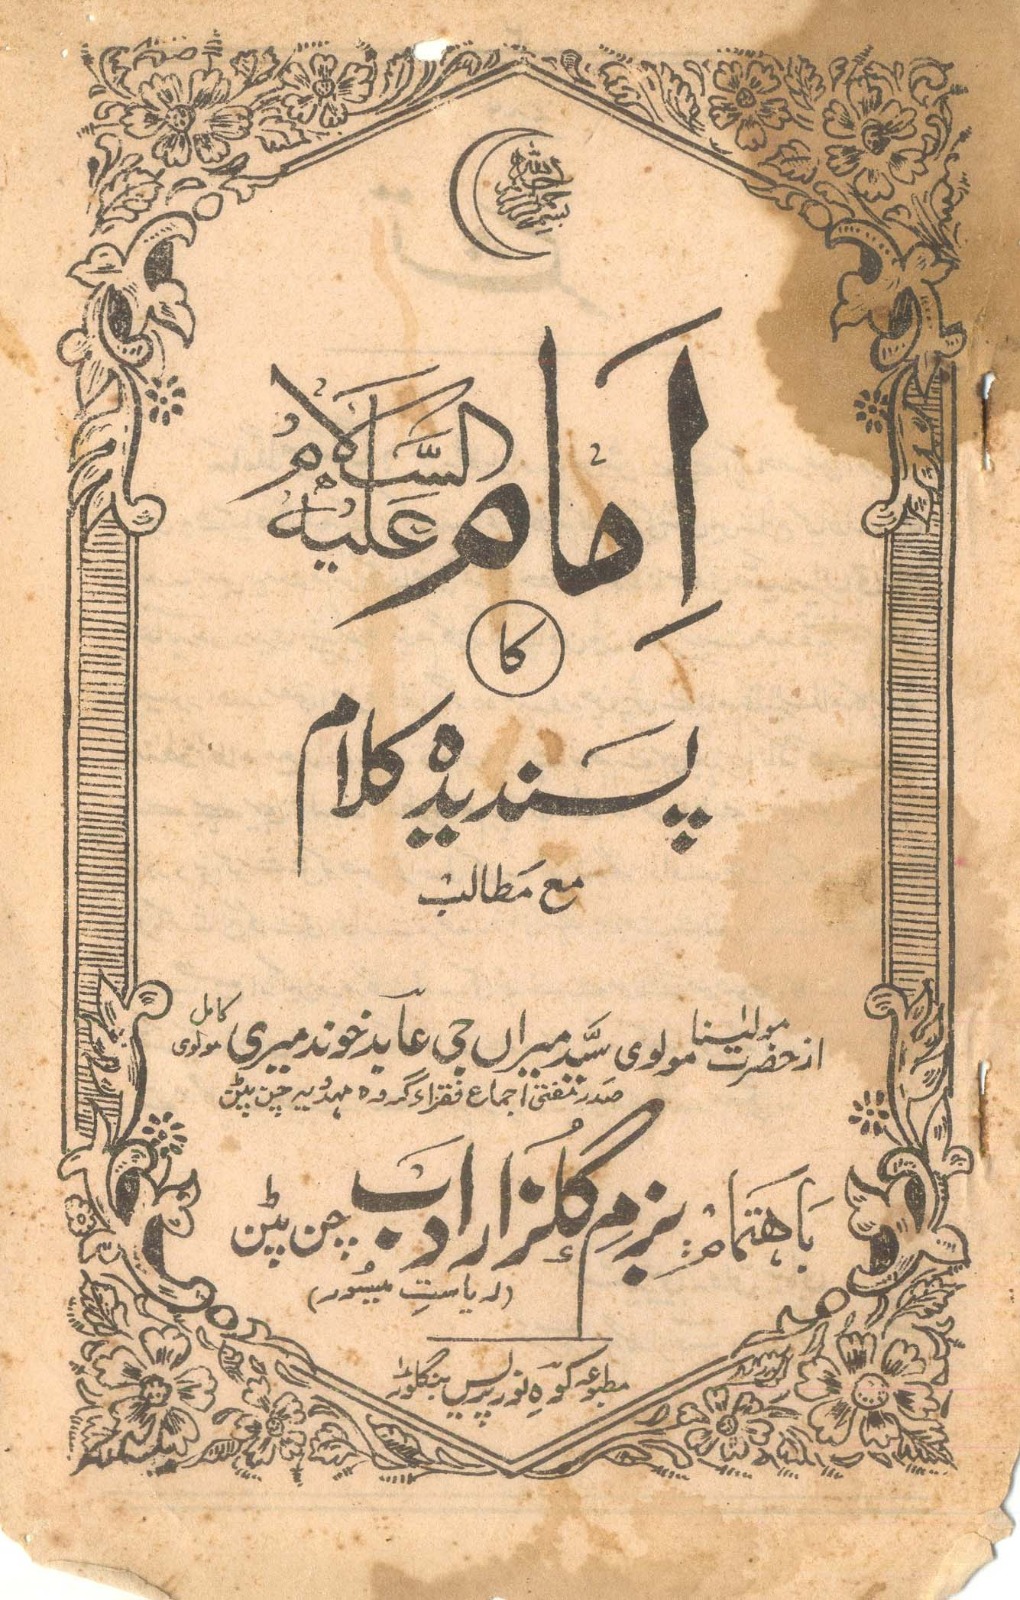 بسم اللہ الرحمن الرحیم
اِمَام عَلَیْہِ السَّلَام
کا
پسندیدہ کلام
مع مَطالب
از حضرت مولٰینا مولوی سیّد میراں جی عابد خوندمیری مولوی کامل
صدر مفتی اجماع فقراء گروہ مہدویہ چن پٹن
باہتمام: بزمِ گلزارِ ادب چن پٹن
(ریاستِ میسور)
مطبوعہ کوہِ نور پریس بنگلور